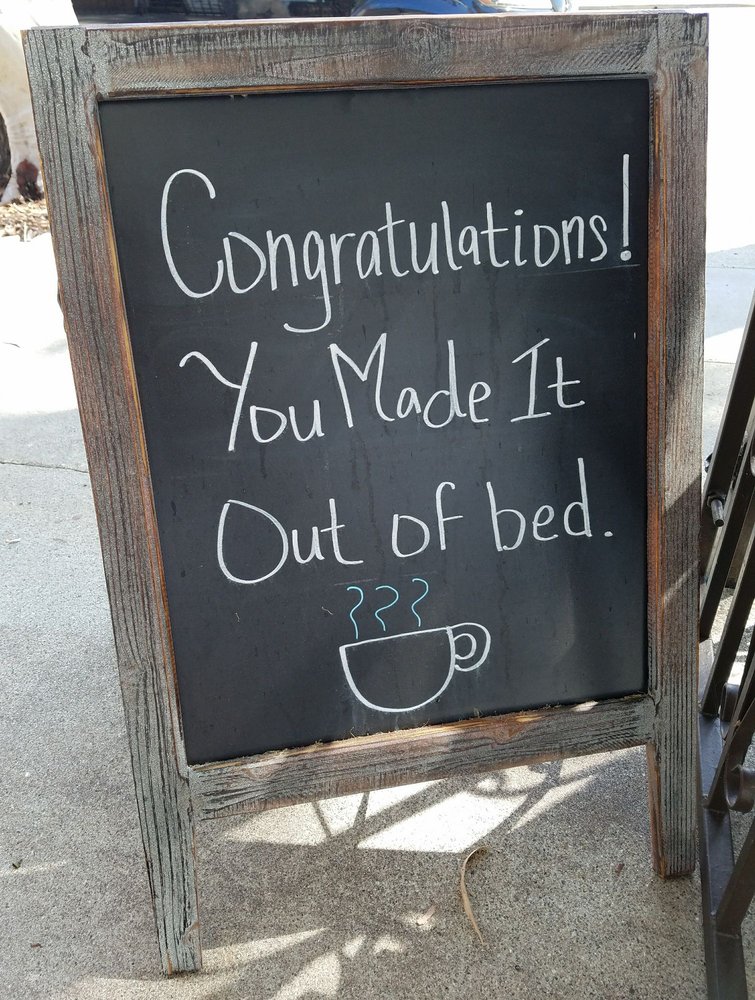 Congratulations!
You Made It
Out of bed.